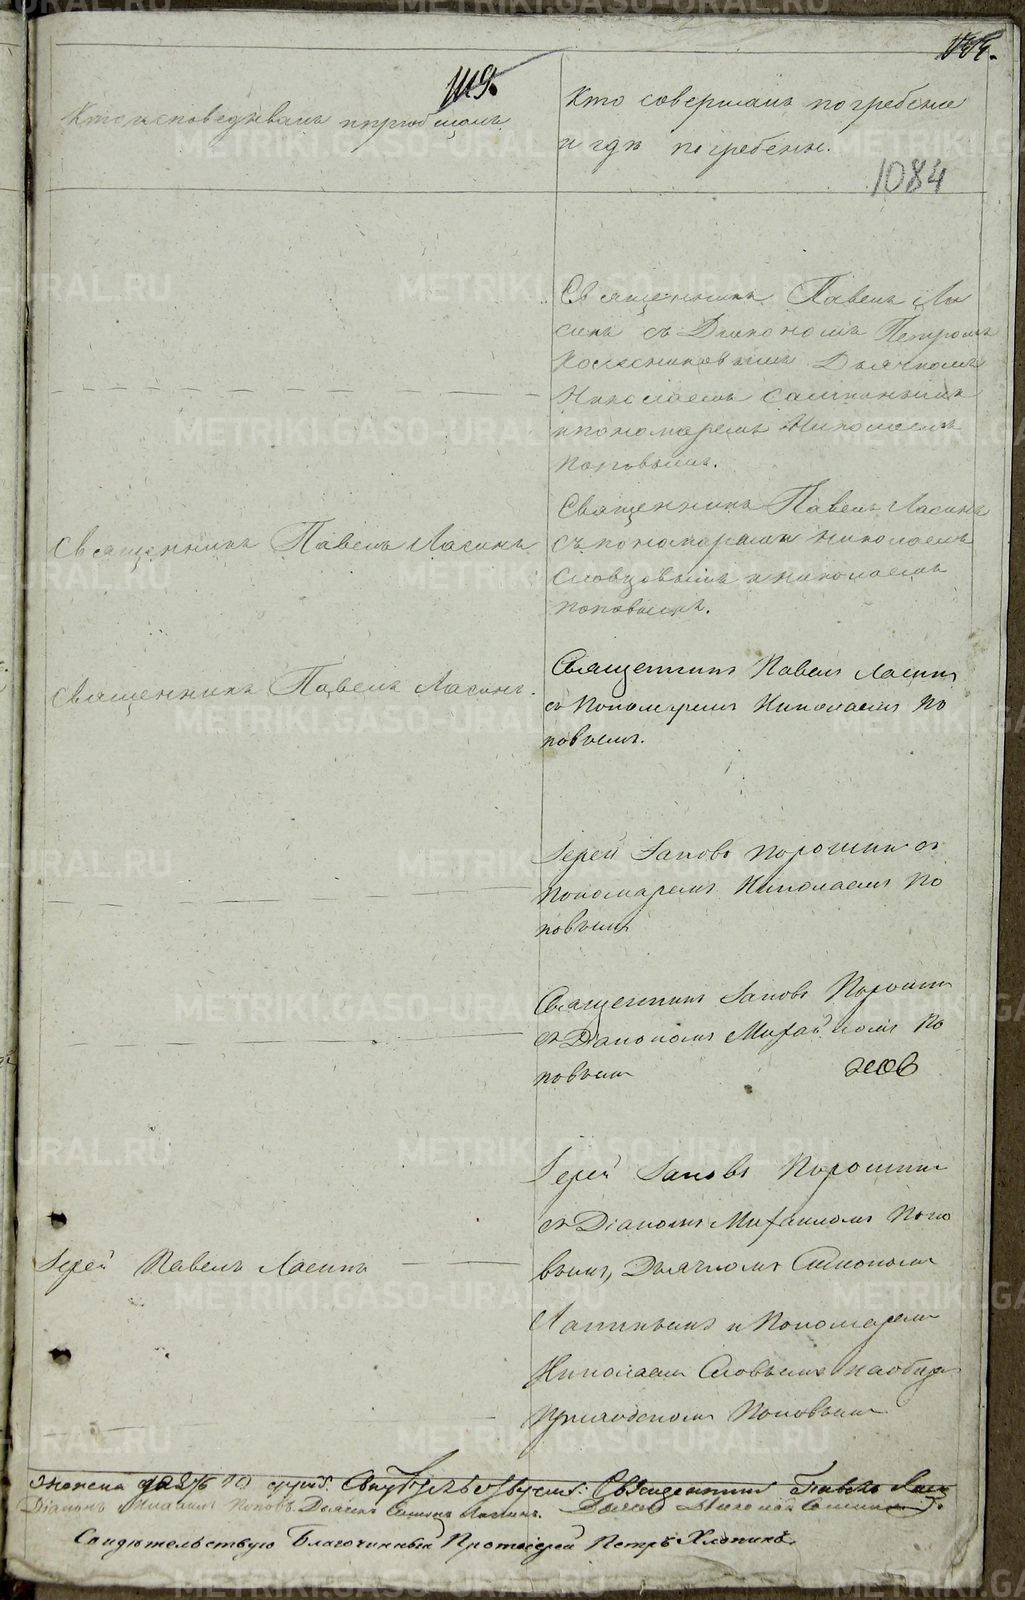 119.
Кто исповедывалъ и пріобщалъ
Кто совершалъ погребеніе
и гдѣ погребены.
1084
Священникъ Павелъ Ла
синъ съ Діакономъ Петромъ
Колесниковымъ Дьячкомъ
Николаемъ
и пономаремъ Николаемъ
Поповымъ.
Священникъ Павелъ Ласинъ
Священникъ Павелъ Ласинъ
съ пономарями Николаемъ
Словцовымъ и Николаемъ
Поповымъ.
Священникъ Павелъ Ласинъ.
Священникъ Павелъ Ласинъ
съ Пономаремъ Николаемъ По
повымъ.
Іерей Іаковъ Порошинъ съ
Пономаремъ Николаемъ По
повымъ
Священникъ Іаковъ Порошин
съ Діакономъ Михаиломъ По
повымъ
Іерей Павелъ Ласинъ
Іерей Іаковъ Порошинъ
съ Діакономъ Михаиломъ Попо
вымъ, Дьячкомъ Симономъ
Лапинымъ и Пономаремъ
Николаемъ на обще
Приходскомъ
Священникъ Павелъ Ласи
Діаконъ Михаилъ Поповъ. Дьячекъ Симонъ Лапинъ.
Свидѣтельствую Благочинный Протоіерей Петръ Хлопинъ.
METRIKI.GASO-URAL.RU